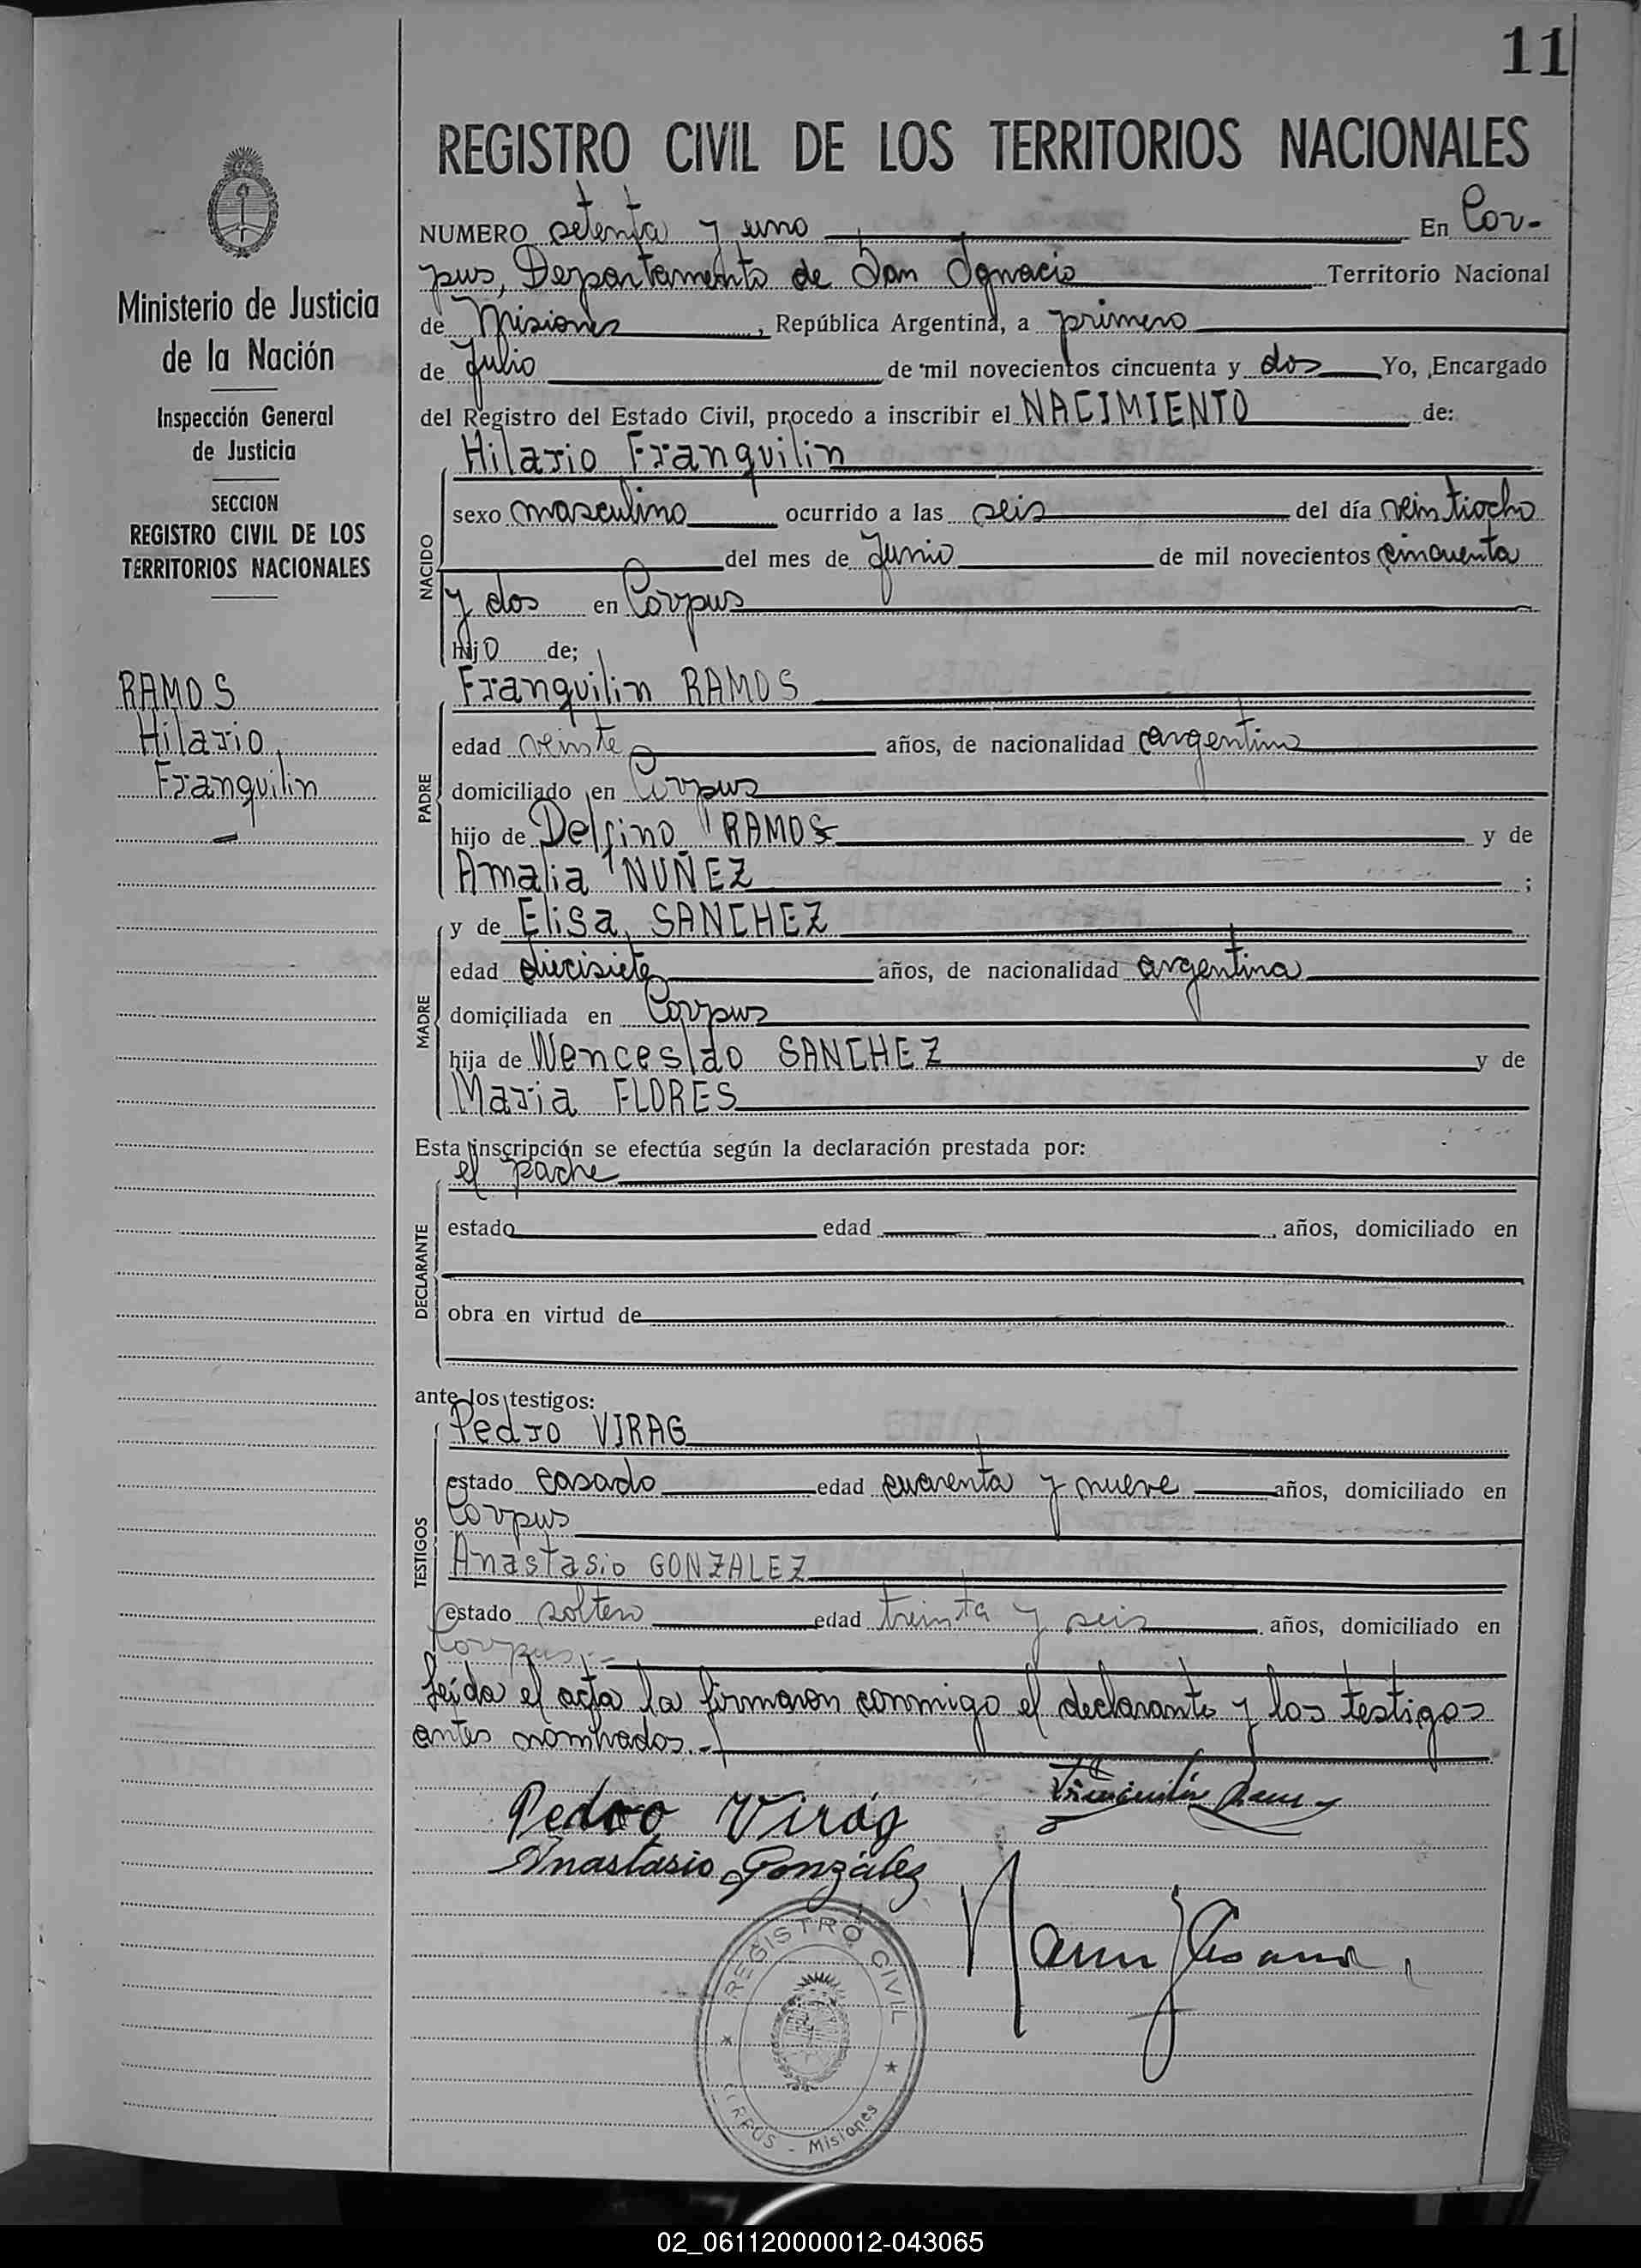 11
REGISTRO CIVIL DE LOS TERRITORIOS NACIONALES
Ministerio de Justicia
de la Nación
Inspección General
de Justicia
SECCION
REGISTRO CIVIL DE LOS
TERRITORIOS NACIONALES
RAMOS
Hilario
Franquilin
NUMERO setenta y uno En Cor-
pus, Departamento de San Ignacio Territorio Nacional
de Misiones, República Argentina, a primero
de Julio de mil novecientos cincuenta y dos Yo, Encargado
del Registro del Estado Civil, procedo a inscribir el NACIMIENTO de:
Hilario Franquilin
NACIDO
sexo masculino ocurrido a las seis del día veintiocho
del mes de Junio de mil novecientos cincuenta
y dos en Corpus
hijo de;
Franquilin RAMOS
PADRE
edad veinte años, de nacionalidad argentina
domiciliado en Corpus
hijo de Delfino RAMOS y de
Amalia NUÑEZ ;
y de Elisa SANCHEZ
MADRE
edad diecisiete años, de nacionalidad argentina
domiciliada en Corpus
hija de Wenceslao SANCHEZ y de
Maria FLORES
Esta inscripción se efectúa según la declaración prestada por:
el padre
DECLARANTE
estado edad años, domiciliado en
obra en virtud de
ante los testigos:
Pedro VIRAG
TESTIGOS
estado casado edad cuarenta y nueve años, domiciliado en
Corpus
Anastasio GONZALEZ
estado soltero edad treinta y seis años, domiciliado en
Corpus.-
Leída el acta la firmaron conmigo el declarante y los testigos
antes nombrados.-
Pedro Virág
Anastasio González
REGISTRO CIVIL
CORPUS - Misiones
02_061120000012-043065